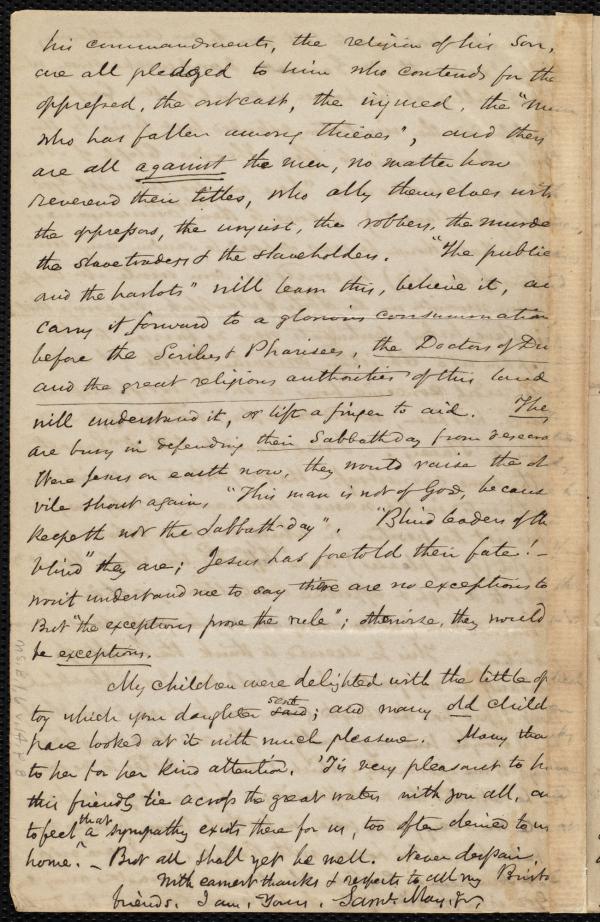 his commandments, the religion of his Son,
are all pledged to him who contends for the
oppressed, the outcast, the injured, the "man
who has fallen among thieves", and they
are all against the men, no matter how
reverend their titles, who ally themselves with
the oppressors, the unjust, the robbers, the murde
the slavetraders & the slaveholders. "The public
and the harlots" will learn this, believe it, an
carry it forward to a glorious consummation
before the Scribes & Pharisees, the Doctors of Di
and the great religious authorities of this land
will understand it, or lift a finger to aid. They
are busy in defending their Sabbath day from
Were Jesus on earth now, they would raise the ol
vile shout again, "This man is not of God, because
keepeth not the Sabbath-day". "Blind leaders of the
blind" they are; Jesus has foretold their fate! –
won't understand me to say there are no exceptions to
But "the exceptions prove the rule"; otherwise, they would
be exceptions.
My children were delighted with the little
toy which your daughter sent; and many old child
have looked at it with much pleasure. Many than
to her for her kind attention. 'Tis very pleasant to have
this friendly tie across the great waters with you all, an
to feel that a sympathy exists there for us, too often denied to us
home. – But all shall yet be well. Never despair.
With earnest thanks & respects to all my Bristo
friends, I am, Yours, Saml. May, Jr.
MS.B.1.6 v.14 p.8